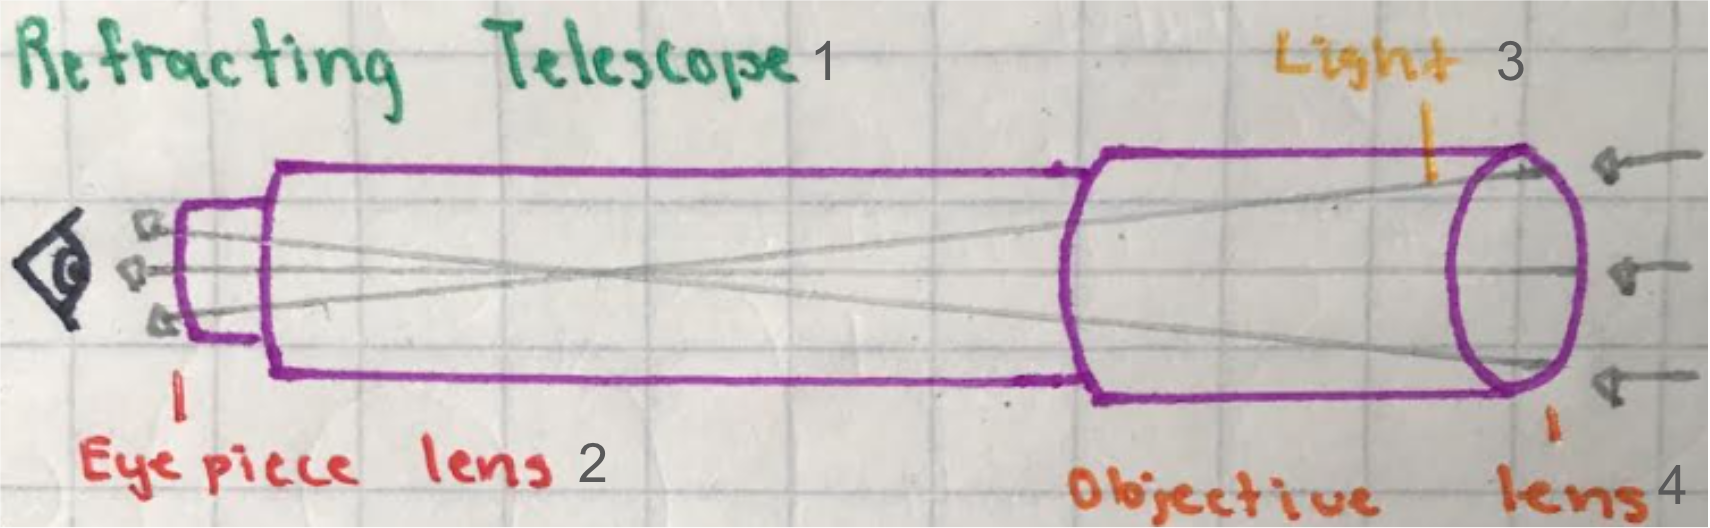 Refracting Telescope 1
Light 3
Eye piece lens 2
Objective lens 4